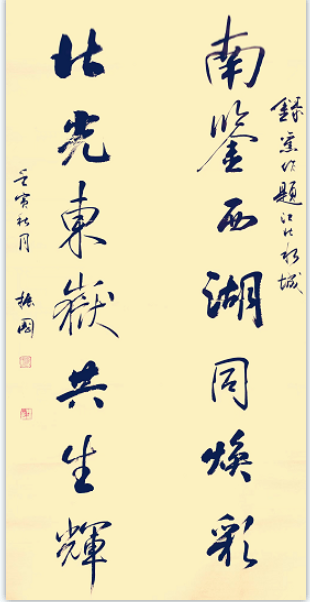 錄舊作題江北水城
南鑒西湖同煥彩
北光東嶽共生輝
壬寅秋月 振國